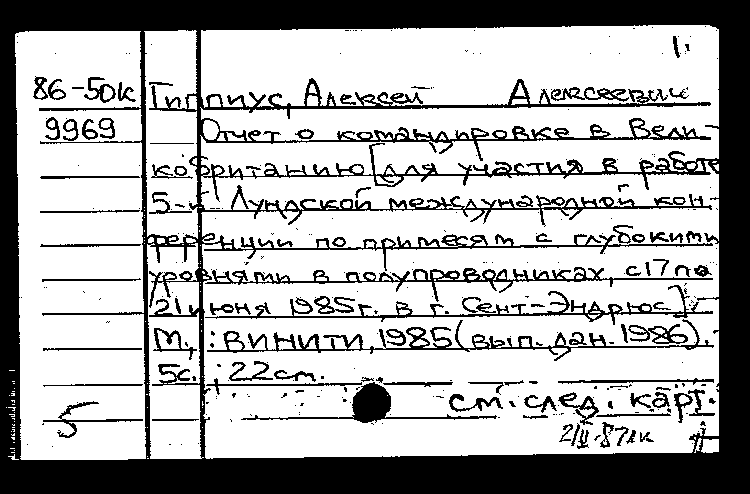 1.
86-50к Гиппиус, Алексей Алексеевич
9969 Отчет о командировке в Вели-
кобританию [для участия в работе
5-й Лундской международной кон-
ференции по примесям с глубокими
уровнями в полупроводниках, с 17 по
21 июня 1985г. в г. Сент-Эндрюс].
М., : ВИНИТИ, 1985 (вып. дан. 1986). -
5с. ; 22см.
5 см. след. карт.